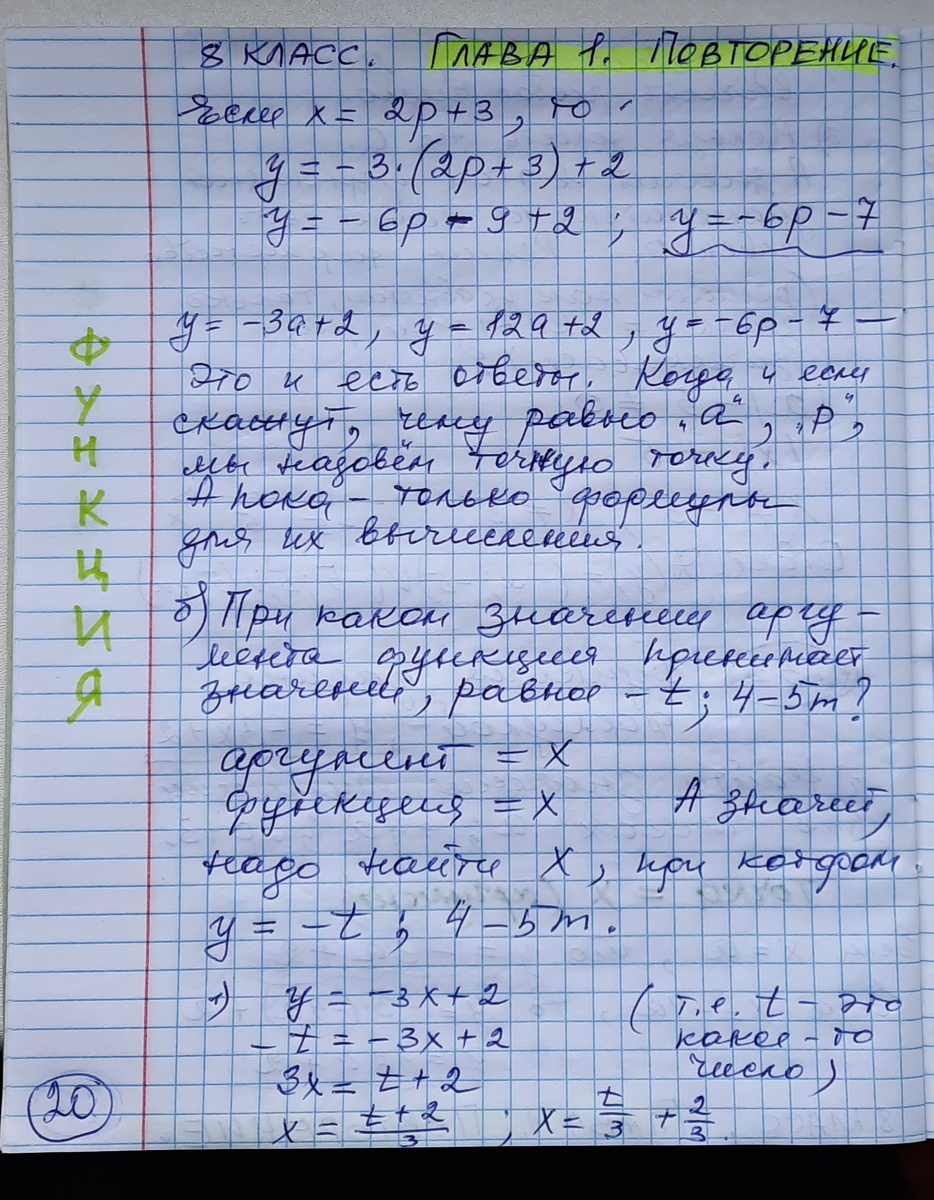 8 КЛАСС. ГЛАВА 1. ПОВТОРЕНИЕ.
Если x = 2p+3, то
y = -3·(2p+3)+2
y = -6p-9+2; y = -6p-7
y = -3a+2, y = 12a+2, y = -6p-7 —
это и есть ответы. Когда и если
скажут, чему равно „a“, „p“,
мы назовём точную точку.
А пока - только формулы
для их вычисления.
б) При каком значении аргу-
мента функция принимает
значение, равное -t; 4-5m?
аргумент = x
функция = x А значит,
надо найти x, при котором
y = -t; 4-5m.
1) y = -3x+2 (т.е. t - это
-t = -3x+2 какое-то
3x = t+2 число)
x = (t+2)/3 ; x = t/3 + 2/3.
ФУНКЦИЯ
20